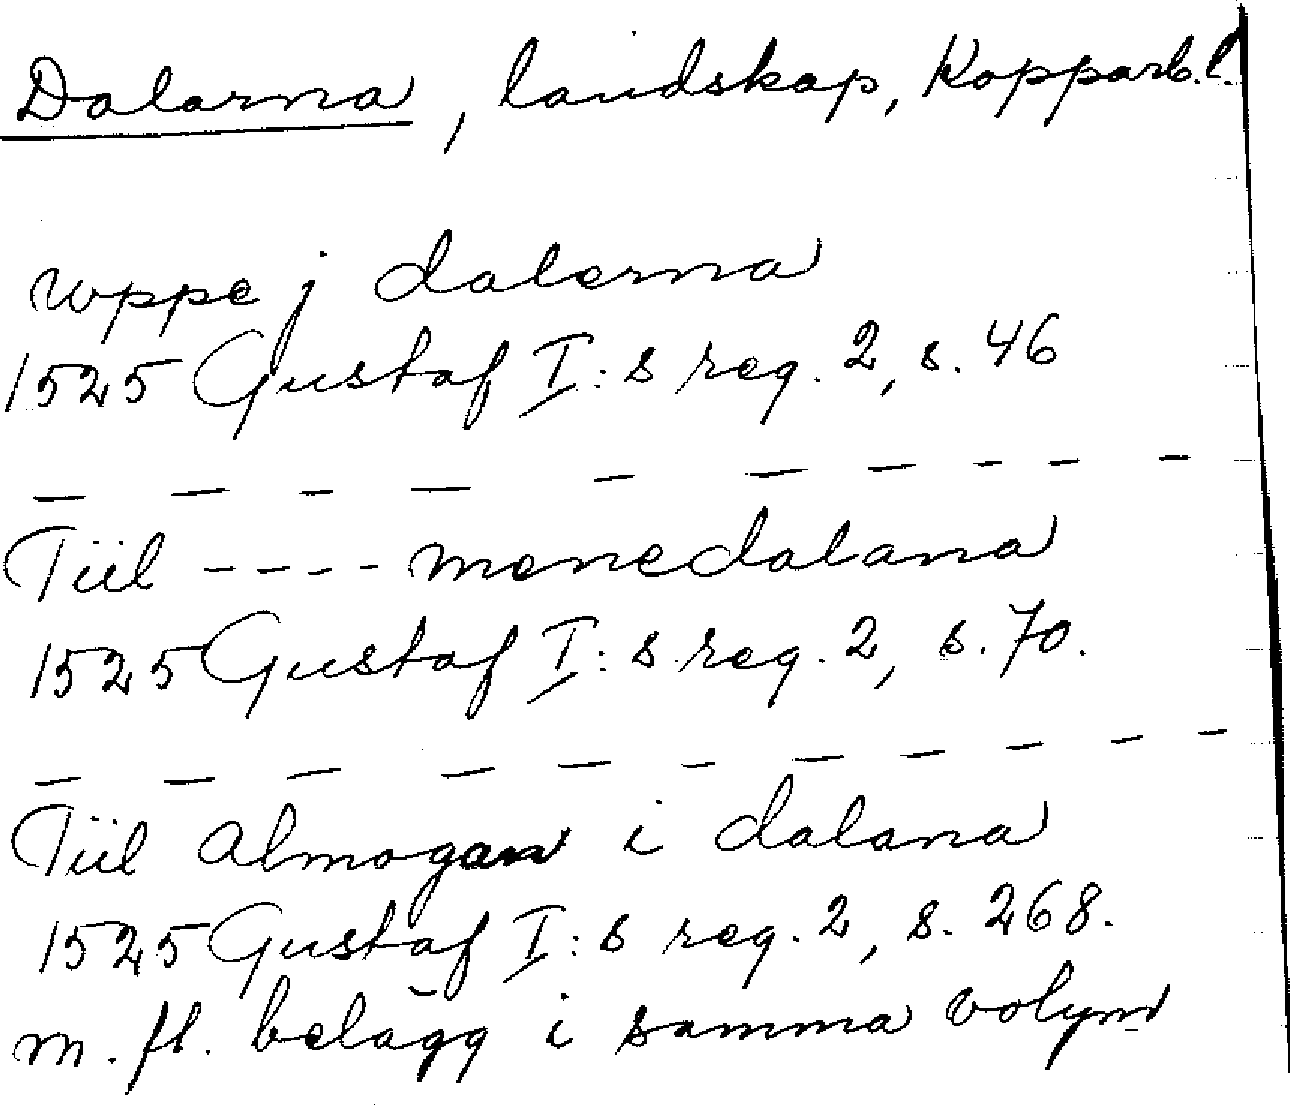 Dalarna, landskap, Kopparb. l.
uppe j dalerna
1525 Gustaf I:s reg. 2, s. 46
— — — — — — — — — —
Tiil - - - - menedalana
1525 Gustaf I:s reg. 2, s. 70.
— — — — — — — — — — —
Tiil Almogan i dalana
1525 Gustaf I:s reg. 2, s. 268.
m. fl. belägg i samma volym